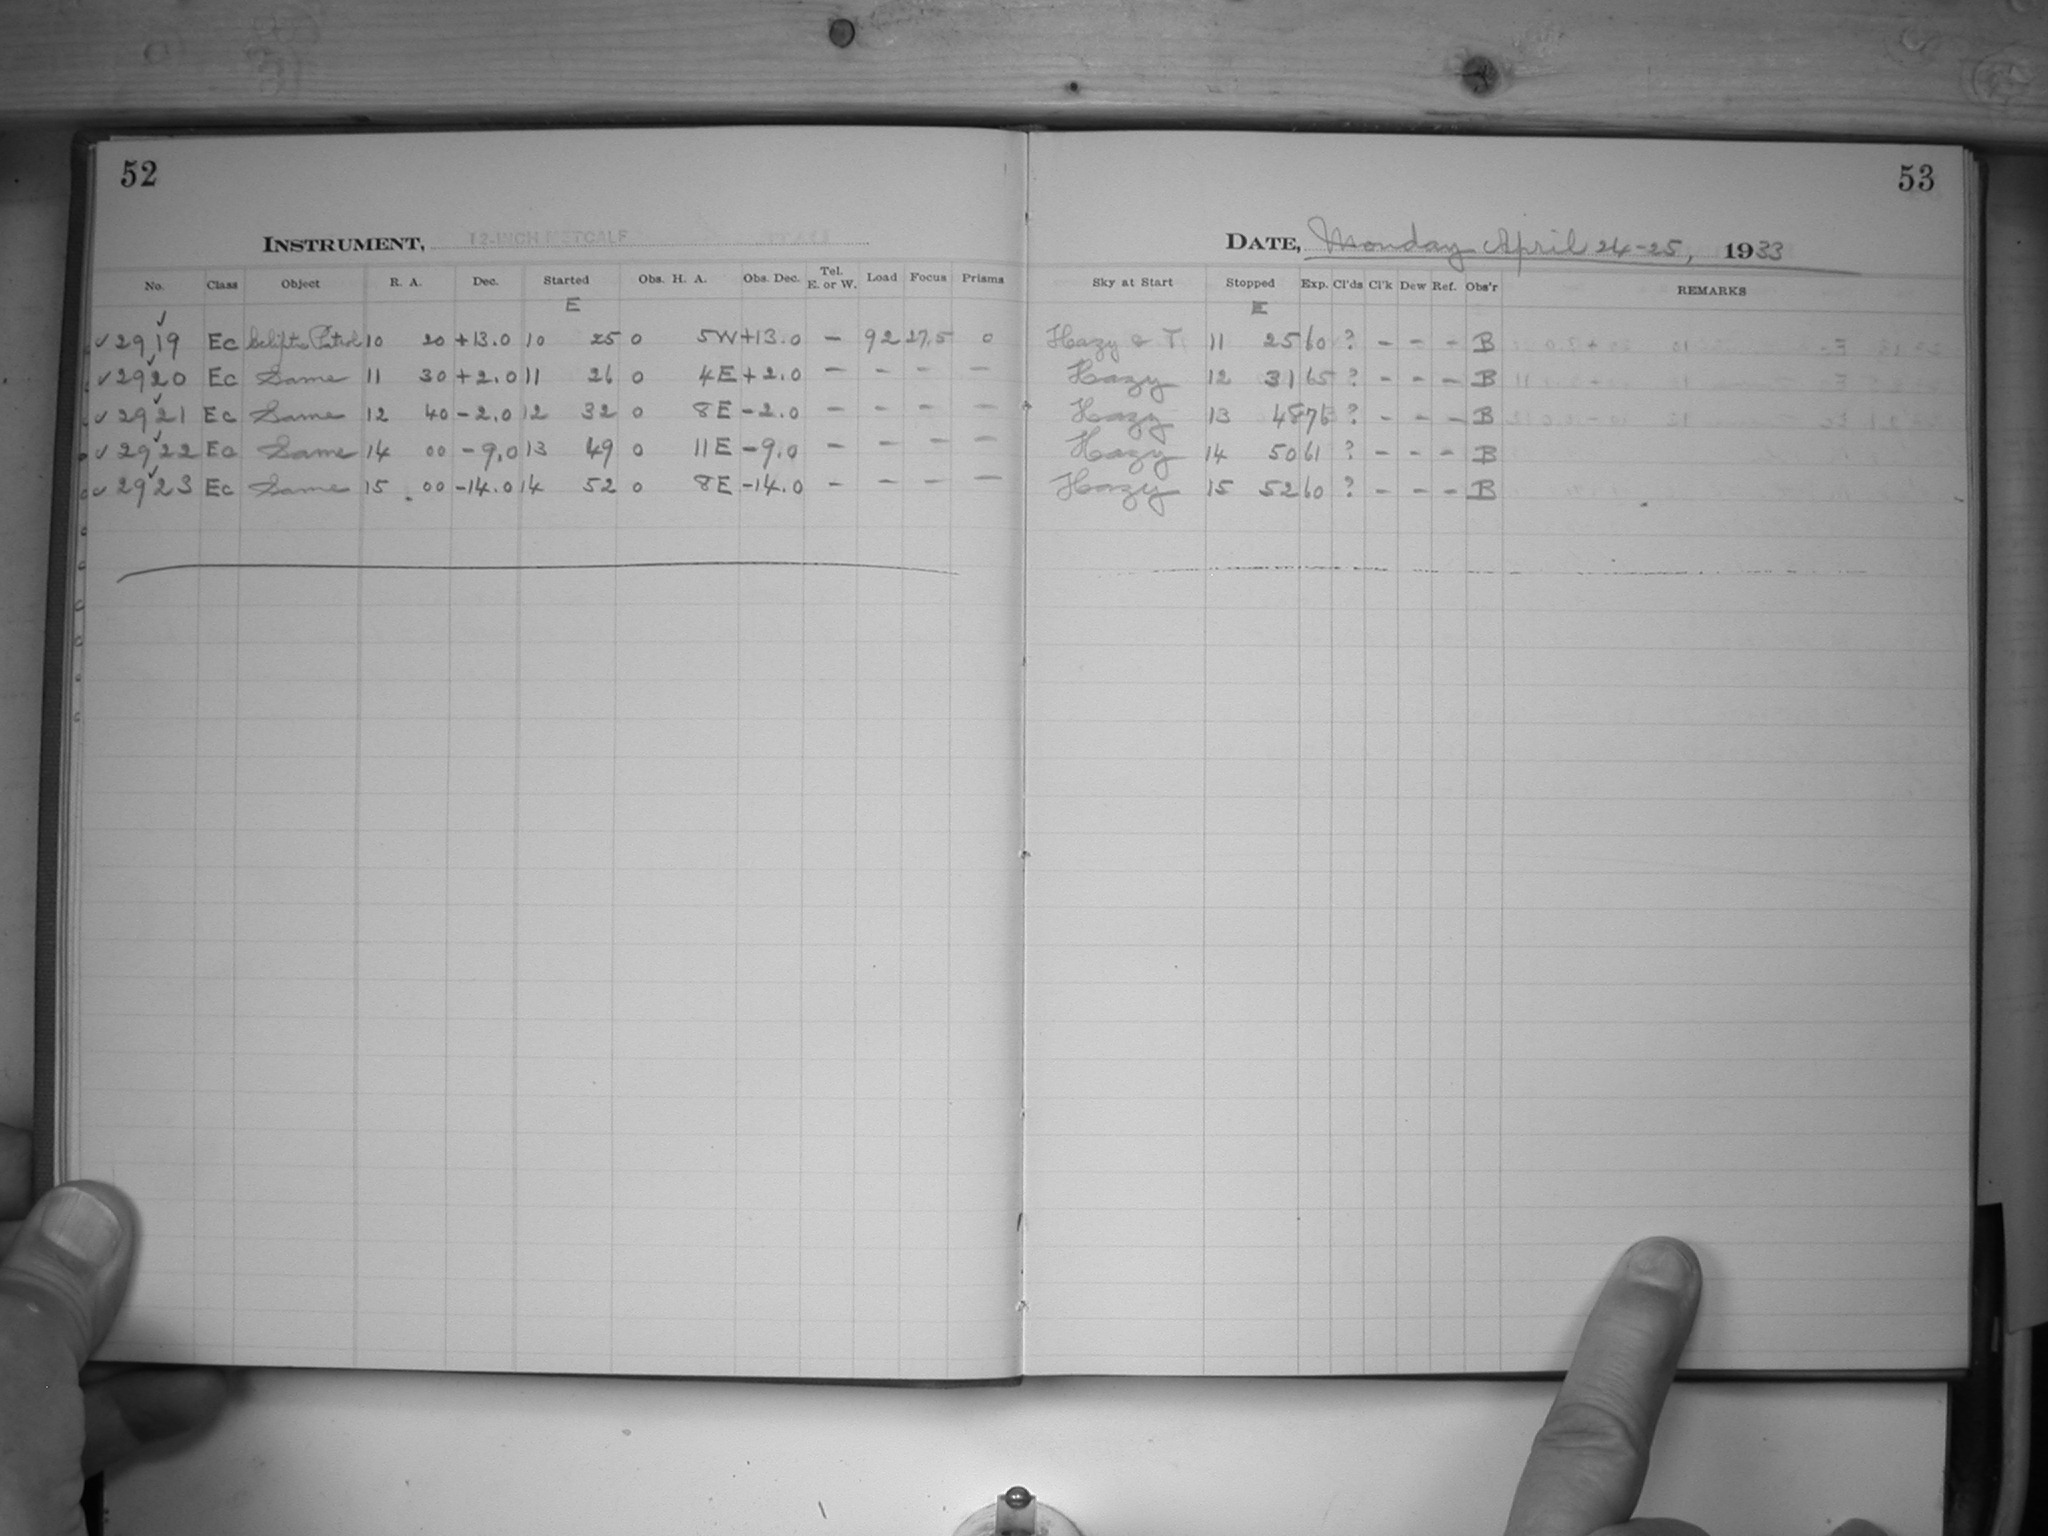 52
INSTRUMENT, 12-INCH METCALF
No. Class Object R. A. Dec. Started Obs. H. A. Obs. Dec. Tel. E. or W. Load Focus Prisms
E
✓ 2919 Ec Ecliptic Patrol 10 20 +13.0 10 25 0 5W +13.0 - 92 27.5 0
✓ 2920 Ec Same 11 30 +2.0 11 26 0 4E +2.0 - - - -
✓ 2921 Ec Same 12 40 -2.0 12 32 0 8E -2.0 - - - -
✓ 2922 Ec Same 14 00 -9.0 13 49 0 11E -9.0 - - - -
✓ 2923 Ec Same 15 00 -14.0 14 52 0 8E -14.0 - - - -
53
DATE, Monday April 24-25, 1933
Sky at Start Stopped Exp. Cl'ds Cl'k Dew Ref. Obs'r REMARKS
E
Hazy & T. 11 25 60 ? - - - B
Hazy 12 31 65 ? - - - B
Hazy 13 48 76 ? - - - B
Hazy 14 50 61 ? - - - B
Hazy 15 52 60 ? - - - B